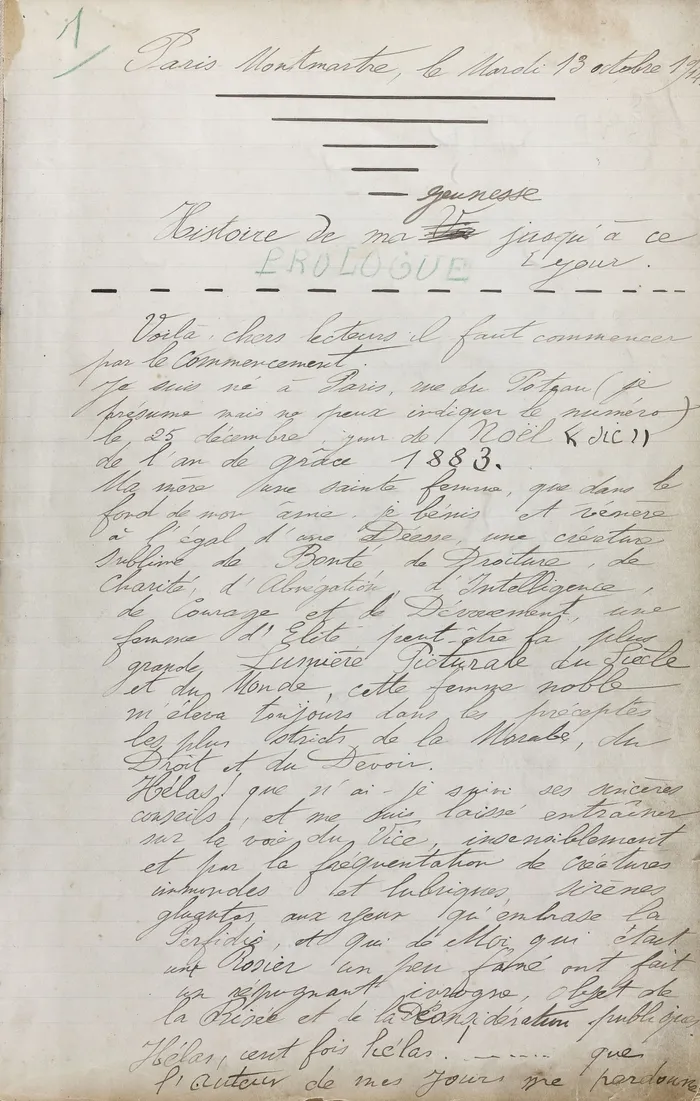 1
Paris Montmartre, le Mardi 13 octobre 19
jeunesse
Histoire de ma jusqu'à ce
jour.
PROLOGUE
Voilà chers lecteurs il faut commencer
par le commencement.
Je suis né à Paris, rue du Poteau (je
présume mais ne peux indiquer le numéro)
le 25 décembre, jour de Noël (sic))
de l'an de grâce 1883.
Ma mère une sainte femme, que dans le
fond de mon âme je bénis et vénère
à l'égal d'une Déesse, une créature
sublime de Bonté, de Droiture, de
Charité, d'Abnégation, d'Intelligence,
de Courage et de Dévouement, une
femme d'Elite peut-être la plus
grande Lumière Picturale du Siècle
et du Monde, cette femme noble
m'éleva toujours dans les préceptes
les plus stricts de la Morale, du
Droit et du Devoir.
Hélas! que n'ai-je suivi ses sincères
conseils, et me suis laissé entraîner
sur la voie du Vice, insensiblement
et par la fréquentation de créatures
immondes et lubriques sirènes
gluantes, aux yeux qu'embrase la
Perfidie, et qui de Moi, qui était
un Rosier un peu fané ont fait
un répugnant ivrogne, objet de
la Risée et de la Déconsidération publique
Hélas, cent fois hélas. ------- que
l'auteur de mes jours me pardonne